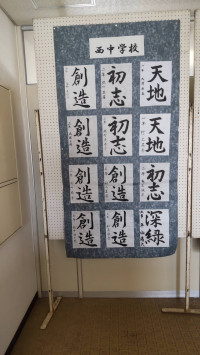 西中学校
天地
初志
創造
天地
初志
創造
初志
創造
創造
深緑
創造
創造